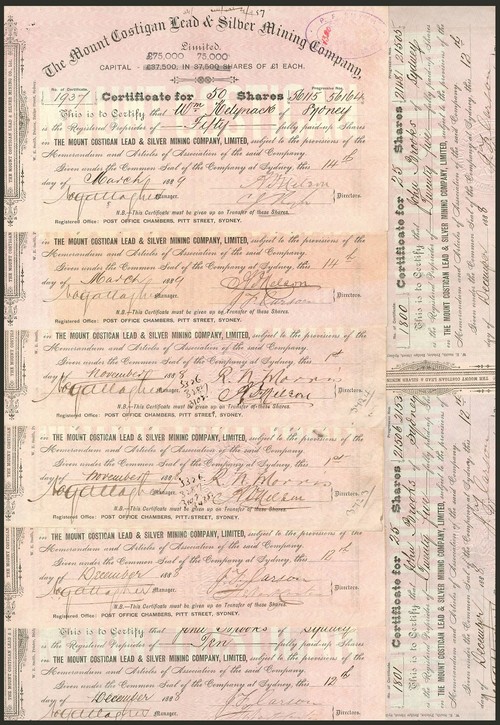 The Mount Costigan Lead & Silver Mining Company,
Limited.
£75,000 75,000
CAPITAL £37,500, IN 37,500 SHARES OF £1 EACH.
No. of Certificate
Progressive Nos.
1937 Certificate for 50 Shares 56115 56164
This is to Certify that Wm of Sydney
is the Registered Proprietor of Fifty fully paid-up Shares
in THE MOUNT COSTIGAN LEAD & SILVER MINING COMPANY, LIMITED, subject to the provisions of the
Memorandum and Articles of Association of the said Company.
Given under the Common Seal of the Company at Sydney, this 14th
day of March 1889
Manager. Directors.
N.B.—This Certificate must be given up on Transfer of these Shares.
Registered Office: POST OFFICE CHAMBERS, PITT STREET, SYDNEY.
in THE MOUNT COSTIGAN LEAD & SILVER MINING COMPANY, LIMITED, subject to the provisions of the
Memorandum and Articles of Association of the said Company.
Given under the Common Seal of the Company at Sydney, this 14th
day of March 1889
Manager. Directors.
N.B.—This Certificate must be given up on Transfer of these Shares.
Registered Office: POST OFFICE CHAMBERS, PITT STREET, SYDNEY.
in THE MOUNT COSTIGAN LEAD & SILVER MINING COMPANY, LIMITED, subject to the provisions of the
Memorandum and Articles of Association of the said Company.
Given under the Common Seal of the Company at Sydney, this 1st
day of November 1888
Manager. Directors.
N.B.—This Certificate must be given up on Transfer of these Shares.
Registered Office: POST OFFICE CHAMBERS, PITT-STREET, SYDNEY.
in THE MOUNT COSTIGAN LEAD & SILVER MINING COMPANY, LIMITED, subject to the provisions of the
Memorandum and Articles of Association of the said Company.
Given under the Common Seal of the Company at Sydney, this 1st
day of November 1888
Manager. Directors.
N.B.—This Certificate must be given up on Transfer of these Shares.
Registered Office: POST OFFICE CHAMBERS, PITT-STREET, SYDNEY.
in THE MOUNT COSTIGAN LEAD & SILVER MINING COMPANY, LIMITED, subject to the provisions of the
Memorandum and Articles of Association of the said Company.
Given under the Common Seal of the Company at Sydney, this 12th
day of December 1888
Manager. Directors.
N.B.—This Certificate must be given up on Transfer of these Shares.
Registered Office: POST OFFICE CHAMBERS, PITT STREET, SYDNEY.
This is to Certify that John Brooks of Sydney
is the Registered Proprietor of Ten fully paid-up Shares
in THE MOUNT COSTIGAN LEAD & SILVER MINING COMPANY, LIMITED, subject to the provisions of the
Memorandum and Articles of Association of the said Company.
Given under the Common Seal of the Company at Sydney, this 12th
day of December 1888
Manager. Directors.
1800 Certificate for 25 Shares 21481 21505
This is to Certify that John Brooks of Sydney
is the Registered Proprietor of Twenty five fully paid-up
in THE MOUNT COSTIGAN LEAD & SILVER MINING COMPANY, LIMITED, subject to
Memorandum and Articles of Association of the said Company.
Given under the Common Seal of the Company at Sydney, this 12th
day of December 1888
1801 Certificate for Shares 21506
This is to Certify that John Brooks of Sydney
is the Registered Proprietor of Twenty five fully paid-up
in THE MOUNT COSTIGAN LEAD & SILVER MINING COMPANY, LIMITED, subject to
Memorandum and Articles of Association of the said Company.
Given under the Common Seal of the Company at Sydney, this 12th
day of December 1888